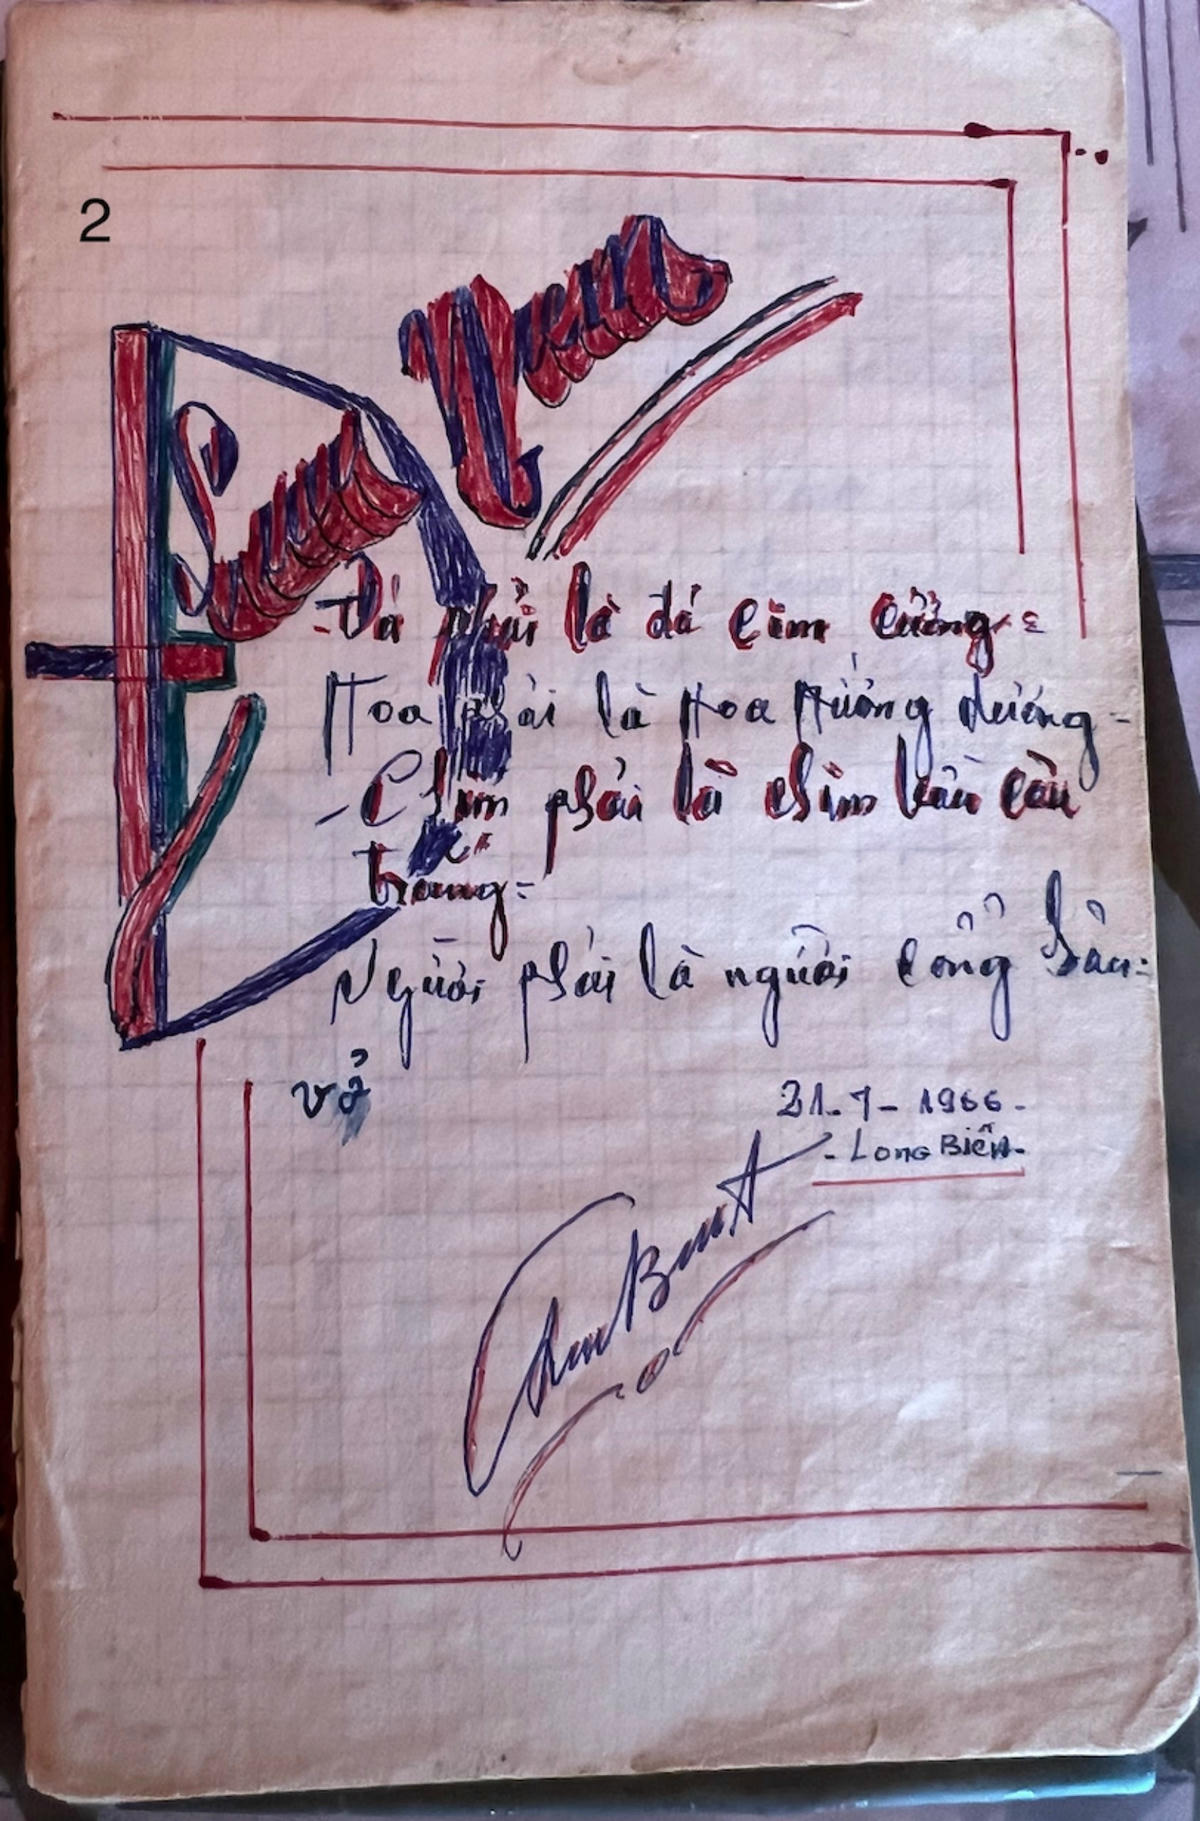 2
- Đá phải là đá cim cương =
Hoa phải là Hoa Hướng dương -
- Chim phải là chim bầu câu
trắng =
Người phải là người cổng sản =
vở
31 - 7 - 1966 -
- Long Biên -